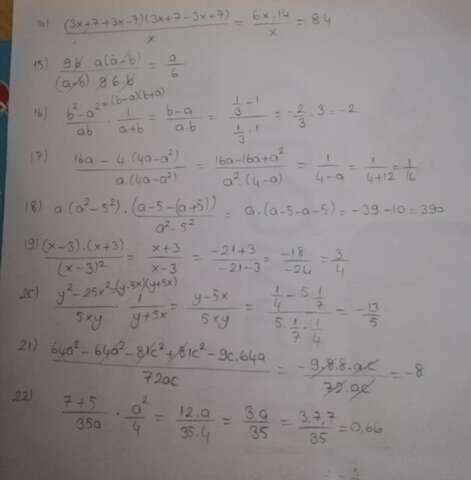 14) (3x+7+3x-7)(3x+7-3x+7) / x = 6x·14 / x = 84
15) 9b · a(a-b) / (a-b) 8 6 b = a/6
16) b²-a² =(b-a)(b+a) / ab · 1/(a+b) = (b-a)/(a·b) = (1/3 - 1)/(1/3 · 1) = -2/3 · 3 = -2
17) (16a - 4·(4a-a²)) / (a·(4a-a²)) = (16a-16a+a²) / (a²·(4-a)) = 1/(4-a) = 1/(4+12) = 1/16
18) a·(a²-5²)·(a-5-(a+5)) / (a²-5²) = a·(a-5-a-5) = -39·-10 = 390
19) (x-3)·(x+3) / (x-3)² = (x+3)/(x-3) = (-21+3)/(-21-3) = -18/-24 = 3/4
20) y²-25x² =(y-5x)(y+5x) / 5xy · 1/(y+5x) = (y-5x)/(5xy) = (1/4 - 5·1/7)/(5·1/7·1/4) = -13/5
21) (64a²-64a²-81c²+81c²-9c·64a) / 72ac = -9·8·8·ac / 72·ac = -8
22) (7+5)/35a · a²/4 = 12·a/(35·4) = 3a/35 = 3·7,7/35 = 0,66